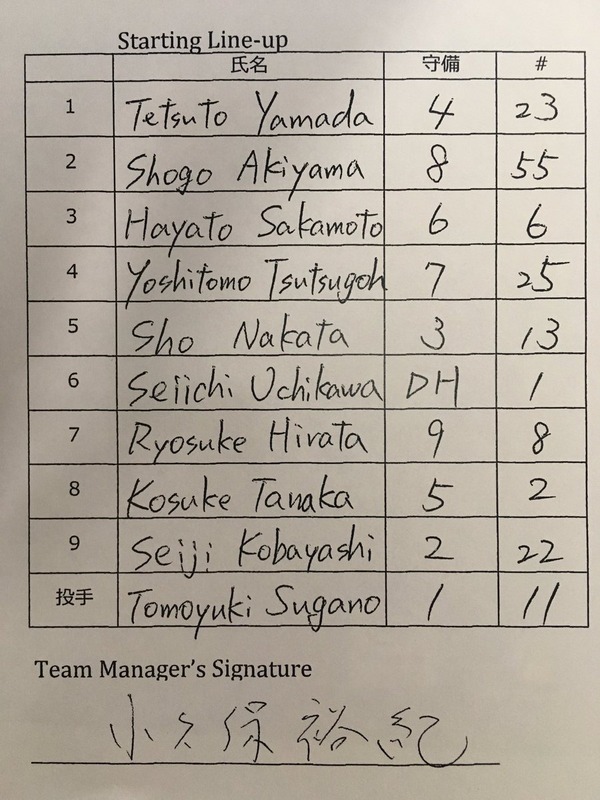 Starting Line-up
氏名 守備 #
1 Tetsuto Yamada 4 23
2 Shogo Akiyama 8 55
3 Hayato Sakamoto 6 6
4 Yoshitomo Tsutsugoh 7 25
5 Sho Nakata 3 13
6 Seiichi Uchikawa DH 1
7 Ryosuke Hirata 9 8
8 Kosuke Tanaka 5 2
9 Seiji Kobayashi 2 22
投手 Tomoyuki Sugano 1 11
Team Manager's Signature
小久保裕紀